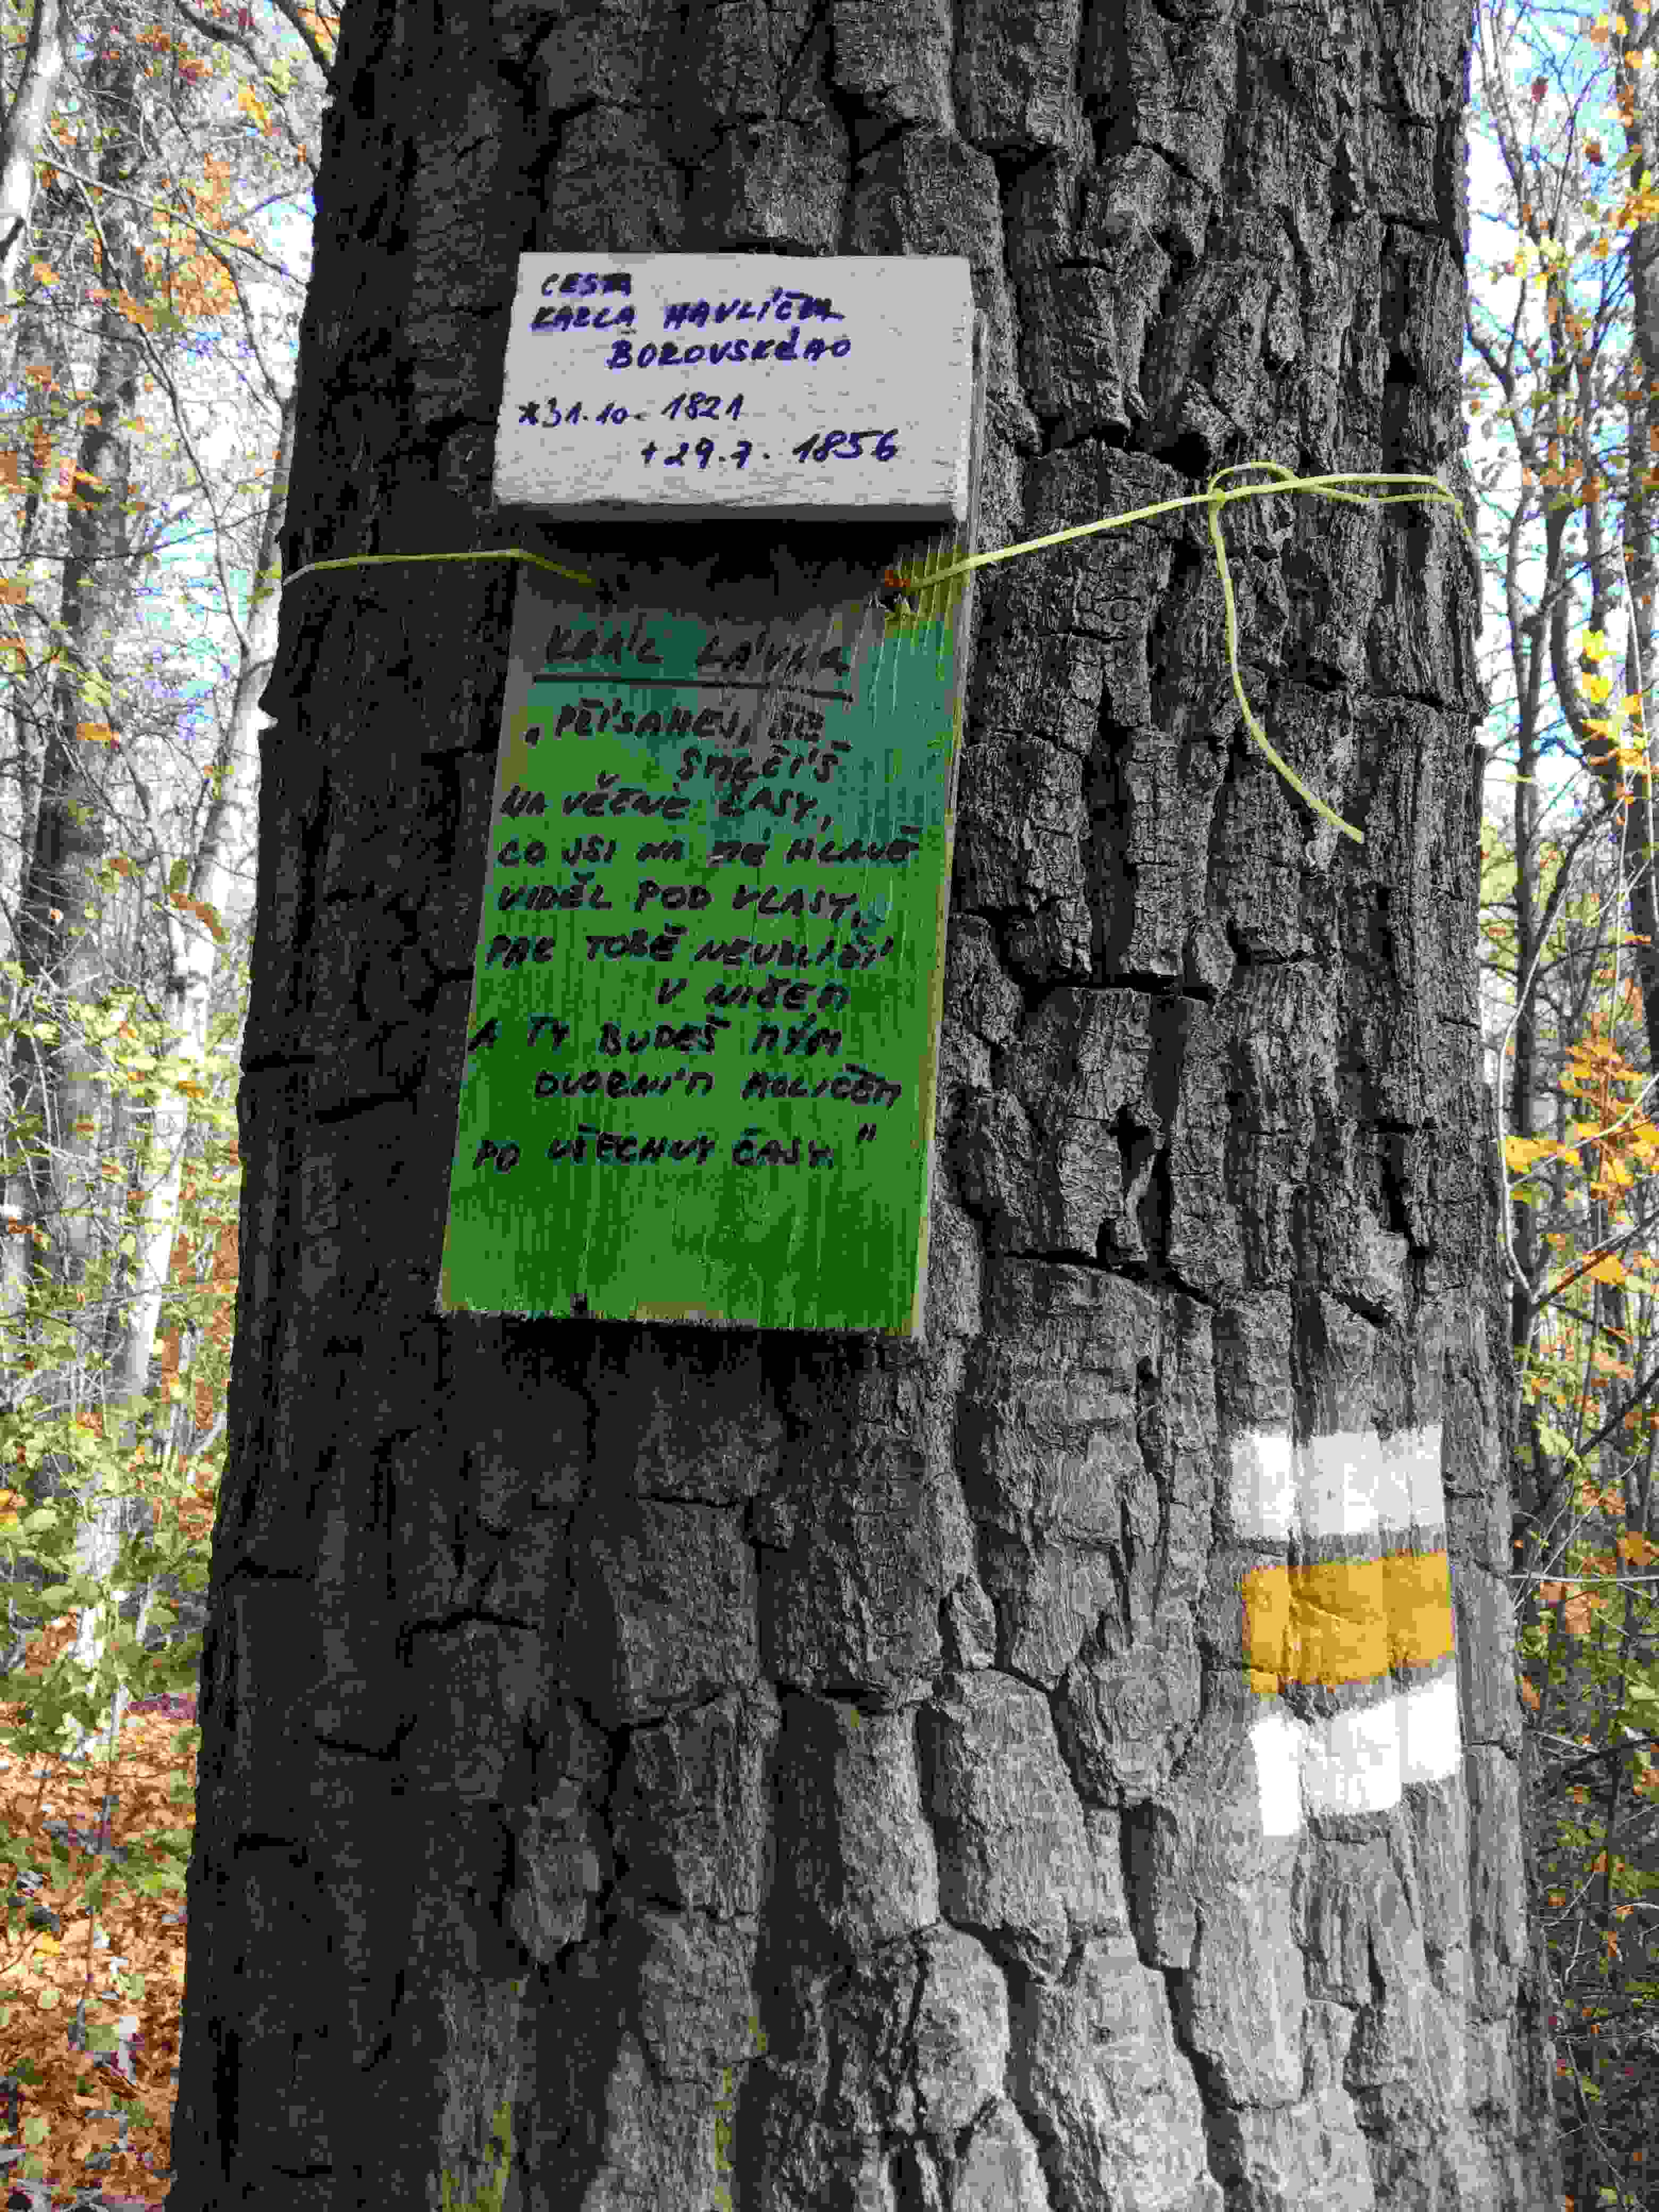 CESTA
KARLA HAVLÍČKA
BOROVSKÉHO
*31.10. 1821
+29.7. 1856
KRÁL LÁVRA
„PŘÍSAHEJ, ŽE
SMLČÍŠ
NA VĚČNÉ ČASY,
CO JSI NA MÉ HLAVĚ
VIDĚL POD VLASY,
PAK TOBĚ NEUBLÍŽÍ
V NIČEM
A TY BUDEŠ MÝM
DVORNÍM HOLIČEM
PO VŠECHNY ČASY."